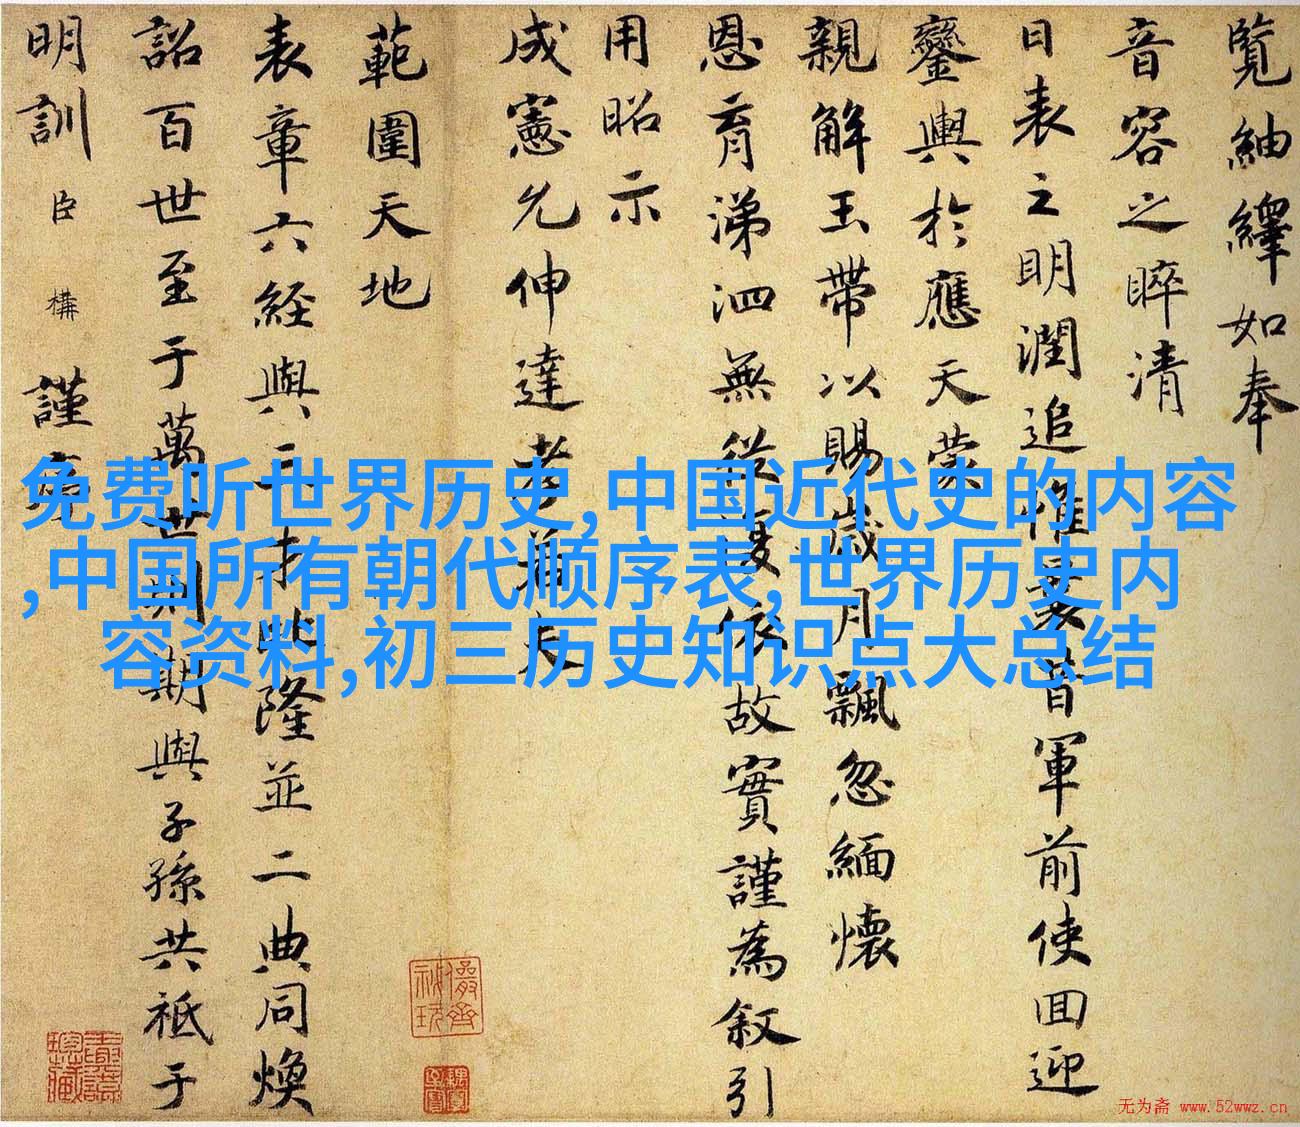 覽紬繹如奉
音容之睟清
日表之明潤追惟曩昔軍前使囬迎
鑾輿於應天蒙
親解玉帶以賜歲月飄忽緬懷
恩育涕泗無從復依故實謹為叙引
用昭示
成憲允伸達孝若夫
範圍天地
表章六經與三才比隆並二典同煥
詔百世至于萬世則期與子孫共祗于
明訓臣構謹序
免费听世界历史,中国近代史的内容
,中国所有朝代顺序表,世界历史内
容资料,初三历史知识点大总结
儼齋
秘玩
无为斋 www.52wwz.cn